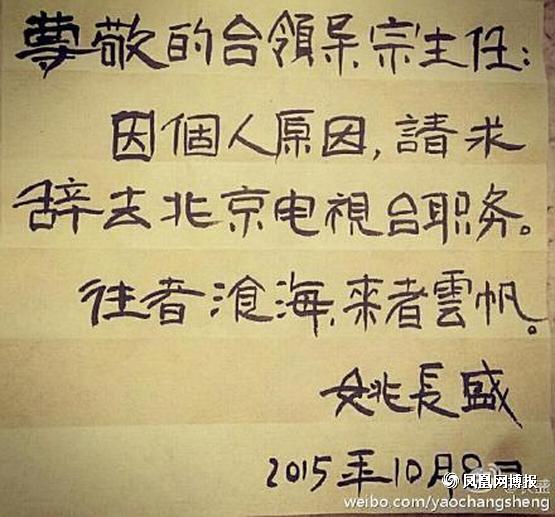 尊敬的台領导宗主任:
因個人原因,請求
辞去北京电視台职务。
往者滄海,来者雲帆。
姚長盛
2015年10月8日
凤凰网博报
weibo.com/yaochangsheng